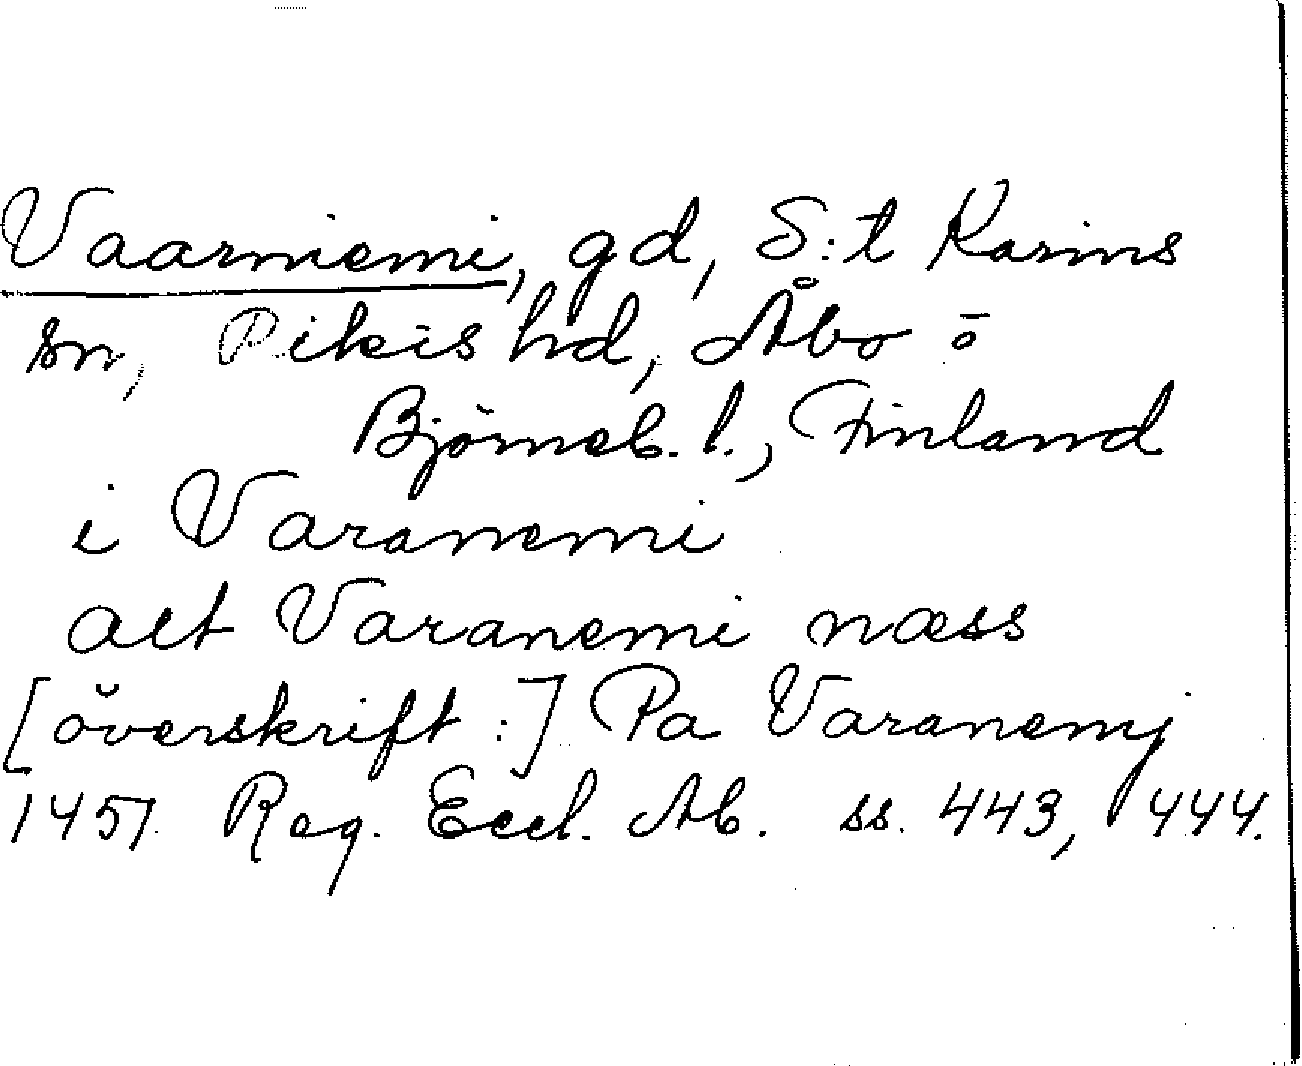 Vaarniemi, gd, S:t Karins
sn, Pikis hd, Åbo o
Björneb. l., Finland
i Varanemi
alt Varanemi næss
[överskrift:] Pa Varanemj
1457 Reg. Eccl. Ab. ss. 443, 444.